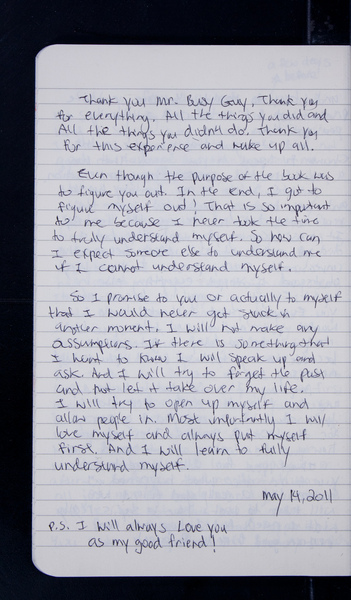 Thank you Mr. Busy Guy, Thank you
for everything. All the things you did and
All the things you didn't do. Thank you
for this experience and wake up all.
Even though the purpose of the book was
to figure you out. In the end, I got to
figure myself out! That is so important
to me because I never took the time
to truly understand myself. So how can
I expect someone else to understand me
if I cannot understand myself.
So I promise to you or actually to myself
that I would never get stuck in
another moment. I will not make any
assumptions. If there is something that
I want to know I will speak up and
ask. And I will try to forget the past
and not let it take over my life.
I will try to open up myself and
allow people in. Most importantly I will
love myself and always put myself
first. And I will learn to fully
understand myself.
May 14, 2011
P.S. I will always Love you
as my good friend!